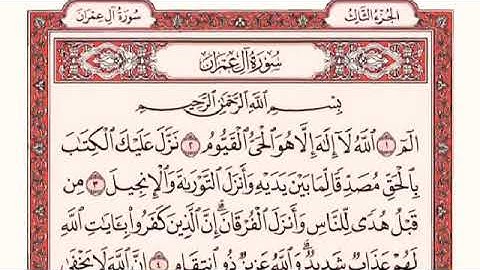 سُورَةُ آلِ عِمْرَانَ
الجُزْءُ الثَّالِثُ
سُورَةُ آلِ عِمْرَانَ
بِسْمِ اللَّهِ الرَّحْمَٰنِ الرَّحِيمِ
الٓمٓ ١ اللَّهُ لَآ إِلَٰهَ إِلَّا هُوَ الْحَيُّ الْقَيُّومُ ٢ نَزَّلَ عَلَيْكَ الْكِتَٰبَ
بِالْحَقِّ مُصَدِّقًا لِّمَا بَيْنَ يَدَيْهِ وَأَنزَلَ التَّوْرَىٰةَ وَالْإِنجِيلَ ٣ مِن
قَبْلُ هُدًى لِّلنَّاسِ وَأَنزَلَ الْفُرْقَانَ ۗ إِنَّ الَّذِينَ كَفَرُوا۟ بِـَٔايَٰتِ اللَّهِ
لَهُمْ عَذَابٌ شَدِيدٌ ۗ وَاللَّهُ عَزِيزٌ ذُو انتِقَامٍ ٤ إِنَّ اللَّهَ لَا يَخْفَىٰ